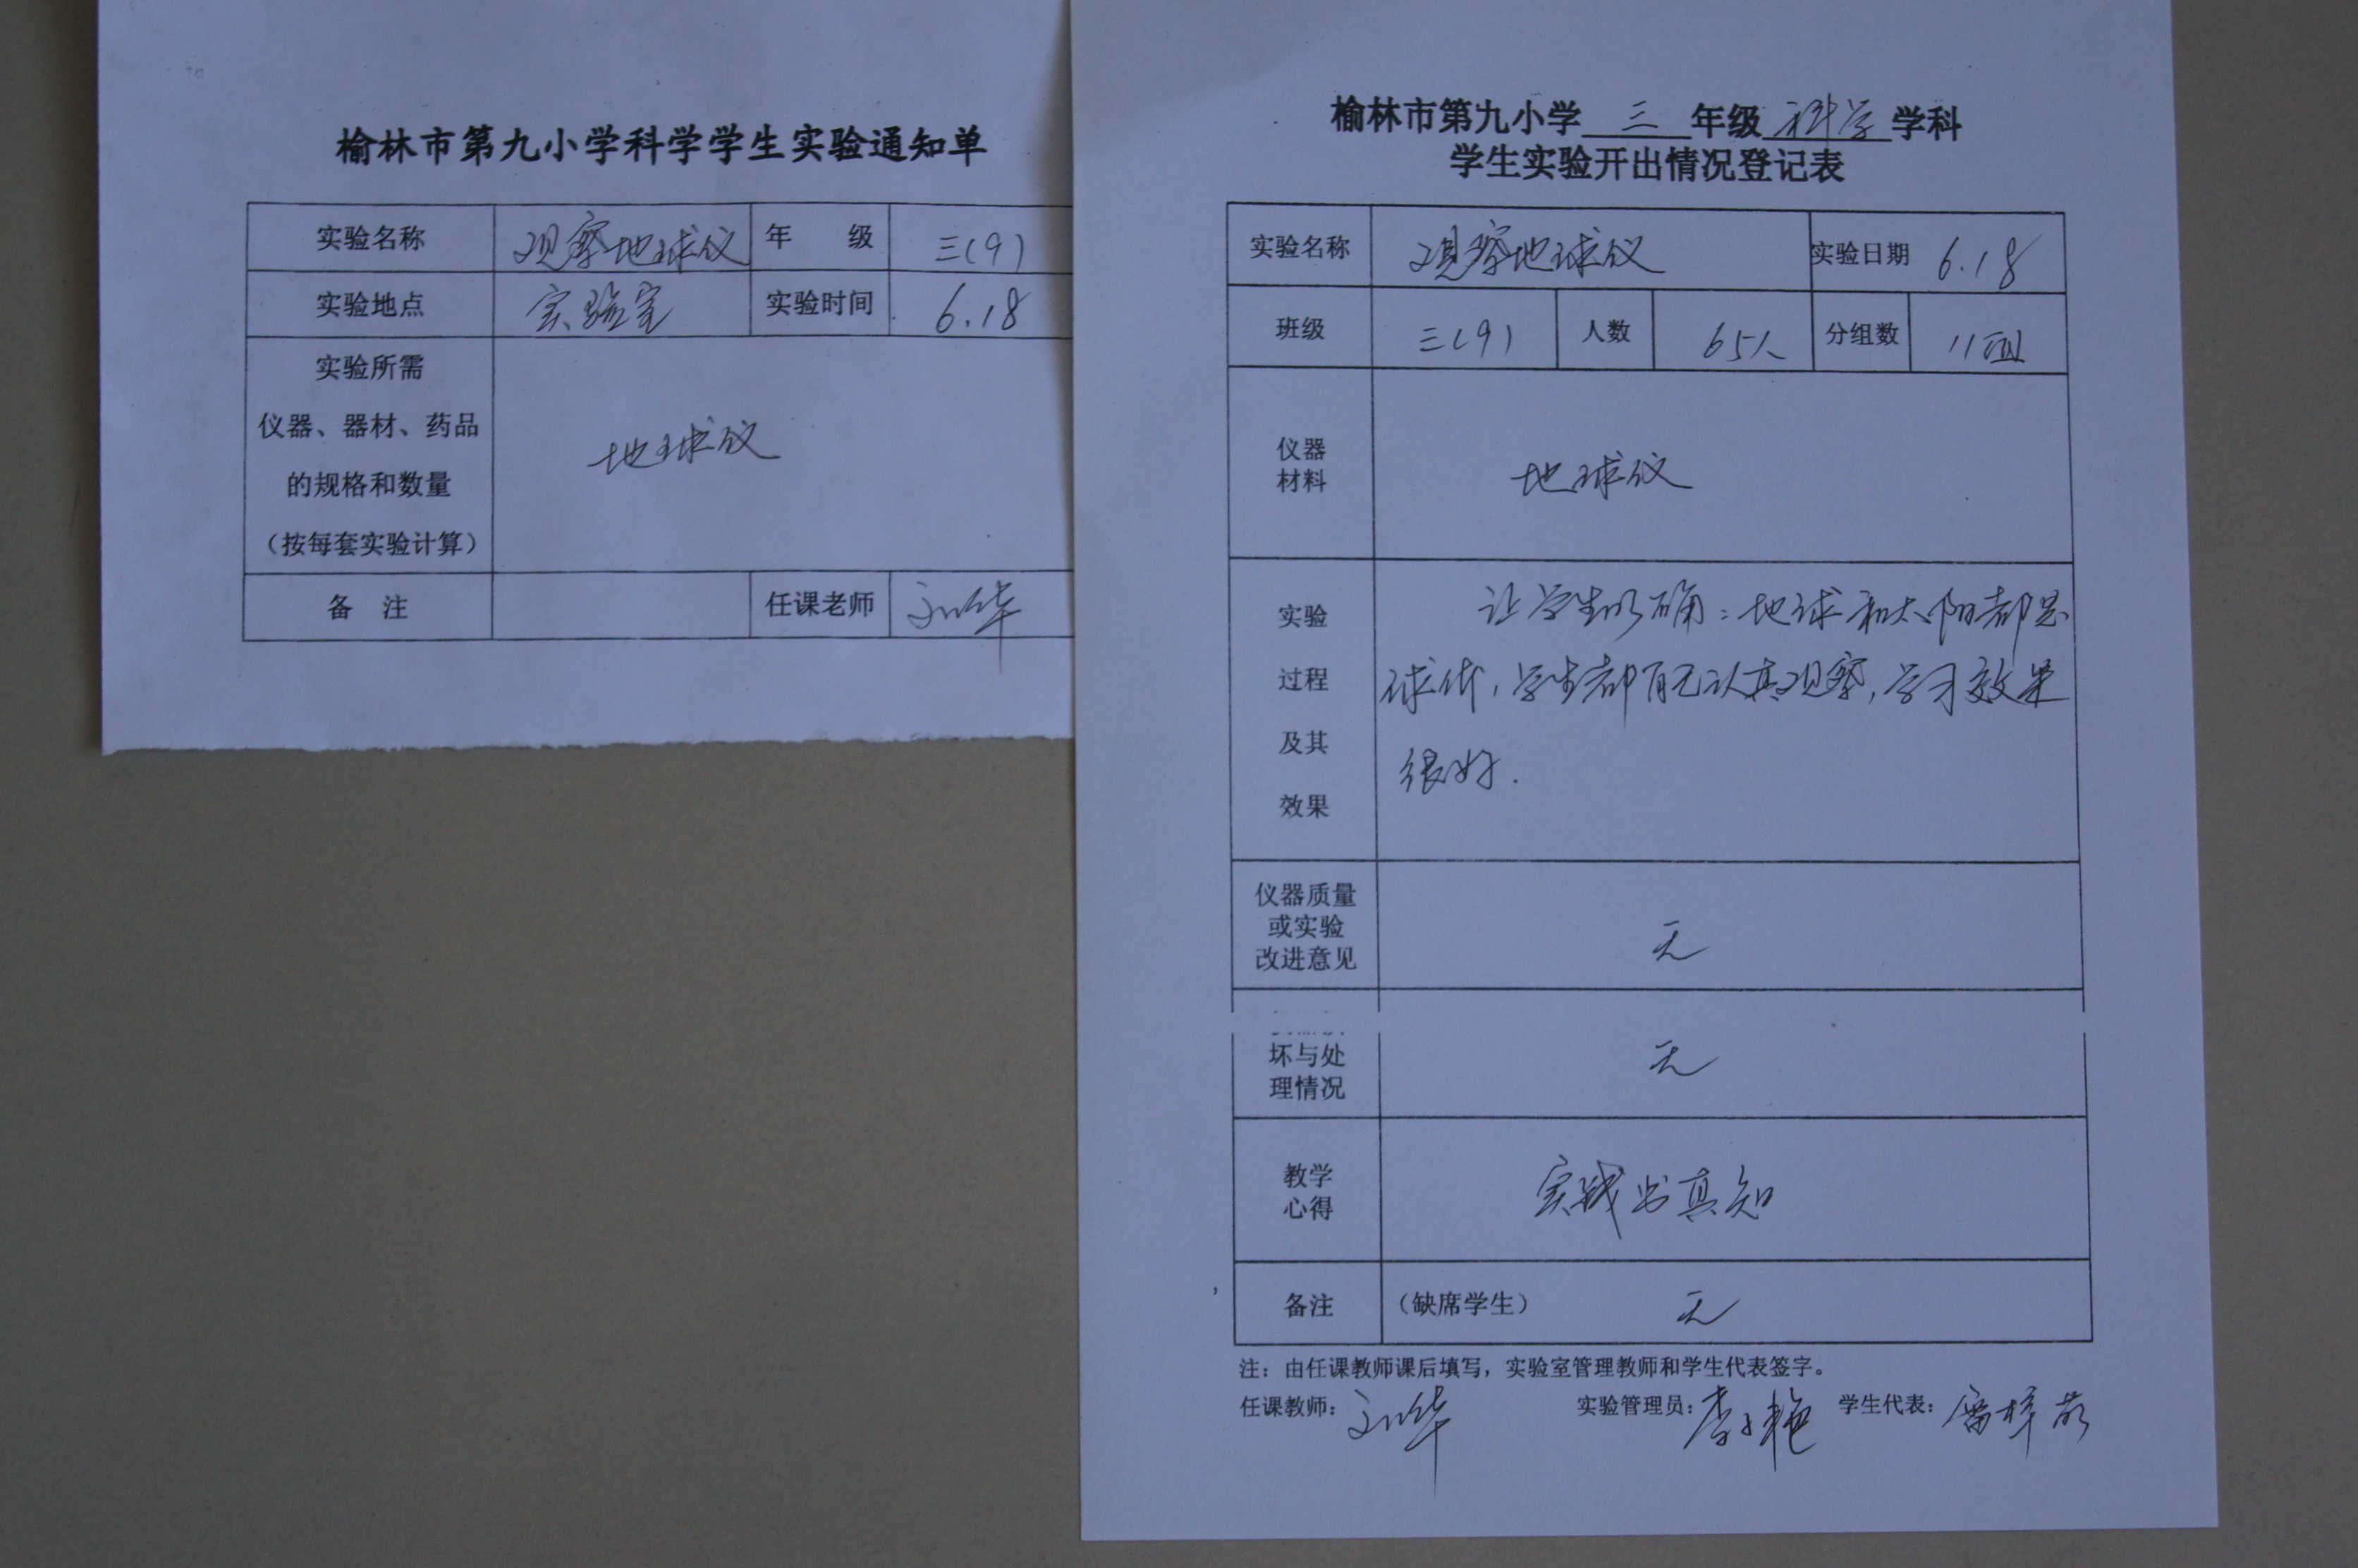 榆林市第九小学科学学生实验通知单
实验名称 观察地球仪 年 级 三(9)
实验地点 实验室 实验时间 6.18
实验所需
仪器、器材、药品
的规格和数量
（按每套实验计算）
地球仪
备 注 任课老师 刘华
榆林市第九小学 三 年级 科学 学科
学生实验开出情况登记表
实验名称 观察地球仪 实验日期 6.18
班级 三(9) 人数 65人 分组数 11组
仪器
材料
地球仪
实验
过程
及其
效果
让学生明确：地球和太阳都是
球体，学生都能认真观察，学习效果
很好.
仪器质量
或实验
改进意见
无
坏与处
理情况
无
教学
心得
实践出真知
备注 （缺席学生） 无
注：由任课教师课后填写，实验室管理教师和学生代表签字。
任课教师：刘华 实验管理员：李小艳 学生代表：